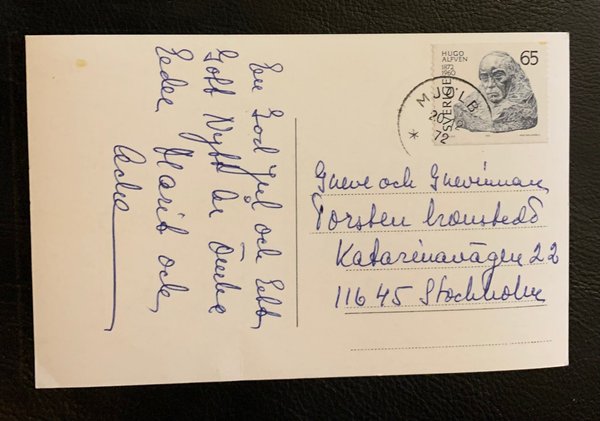 En God Jul och Ett
Gott Nytt År Önska
Eeder Marit och
HUGO
ALFVÉN
1872
1960
65
SVERIGE
MJÖLB
72
Greve och Grevinnan
Torsten Cronstedt
Katarinavägen 22
116 45 Stockholm